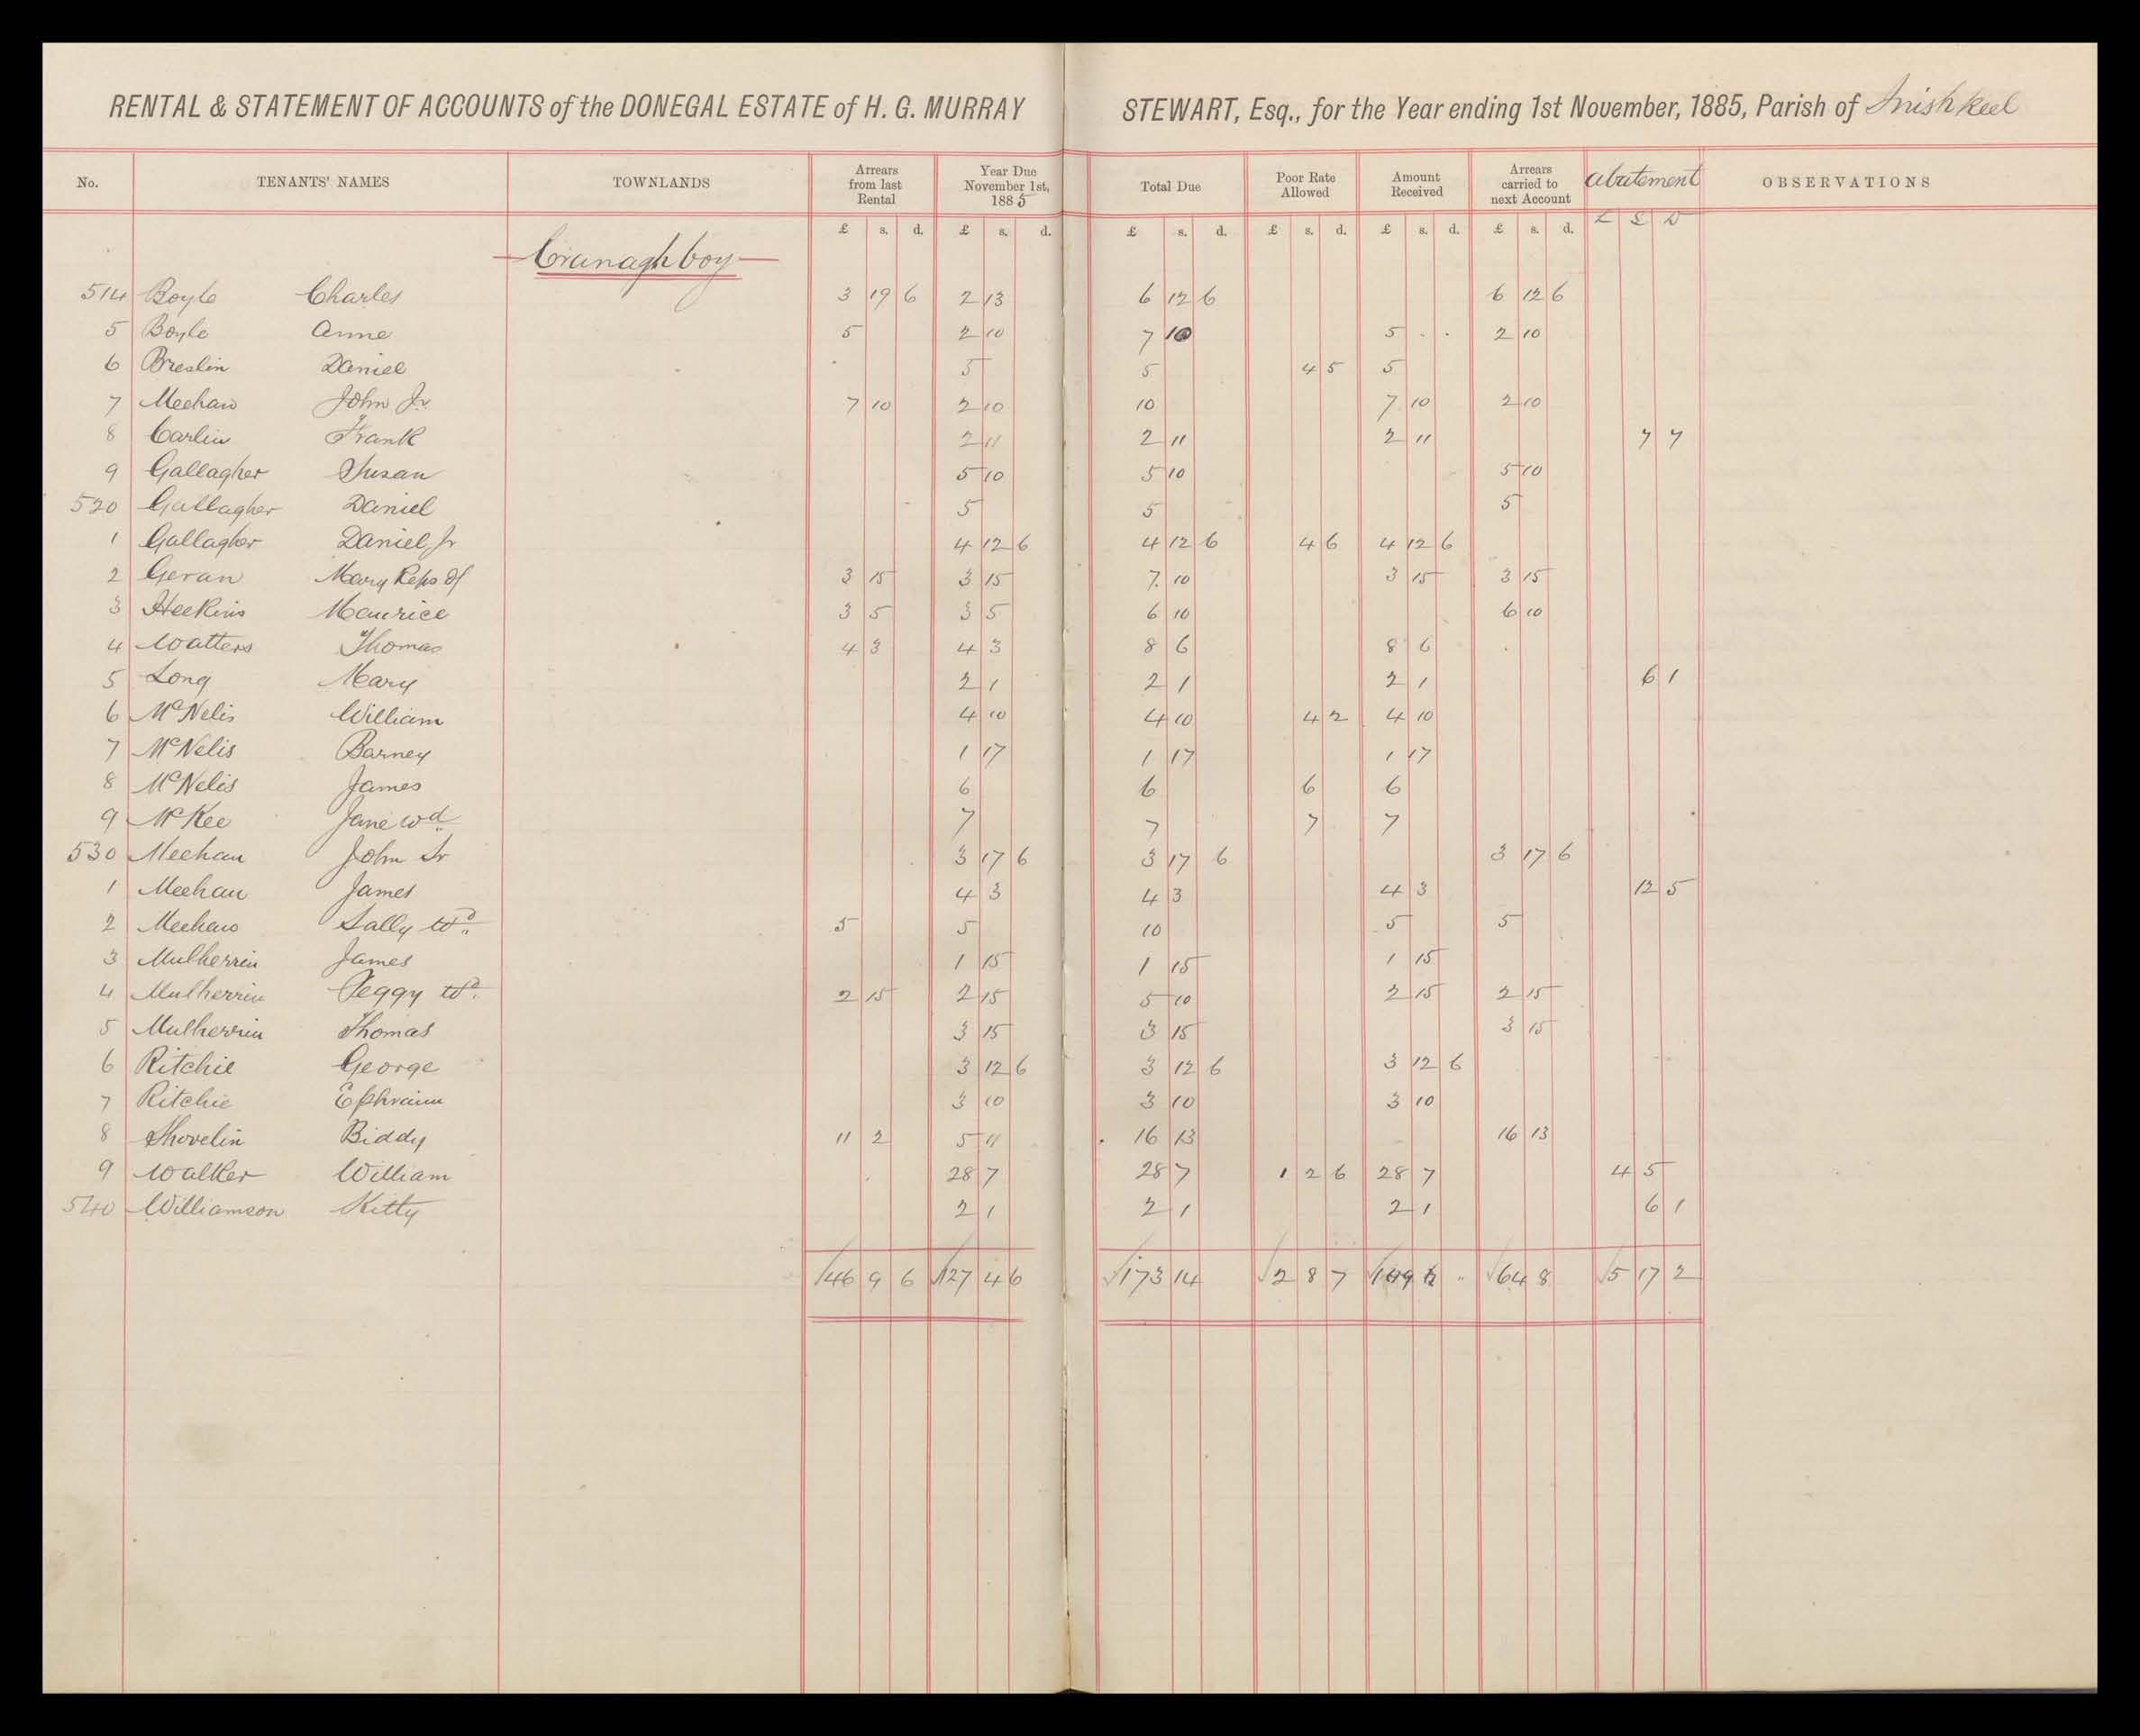 RENTAL & STATEMENT OF ACCOUNTS of the DONEGAL ESTATE of H. G. MURRAY STEWART, Esq., for the Year ending 1st November, 1885, Parish of Inishkeel
No. TENANTS' NAMES TOWNLANDS Arrears from last Rental Year Due November 1st, 1885 Total Due Poor Rate Allowed Amount Received Arrears carried to next Account Abatement OBSERVATIONS
£ s. d. £ s. d. £ s. d. £ s. d. £ s. d. £ s. d. £ S D
Cranagh boy
514 Boyle Charles 3 19 6 2 13 6 12 6 6 12 6
5 Boyle Anne 5 2 10 7 10 5 . . 2 10
6 Breslin Daniel 5 5 4 5 5
7 Meehan John Jr 7 10 2 10 10 7 10 2 10
8 Carlin Frank 2 11 2 11 2 11 7 7
9 Gallagher Susan 5 10 5 10 5 10
520 Gallagher Daniel 5 5 5
1 Gallagher Daniel Jr 4 12 6 4 12 6 4 6 4 12 6
2 Geran Mary Reps of 3 15 3 15 7 10 3 15 3 15
3 Heekins Maurice 3 5 3 5 6 10 6 10
4 Watters Thomas 4 3 4 3 8 6 8 6
5 Long Mary 2 1 2 1 2 1 6 1
6 McNelis William 4 10 4 10 4 2 4 10
7 McNelis Barney 1 17 1 17 1 17
8 McNelis James 6 6 6 6
9 McKee Jane wd 7 7 7 7
530 Meehan John Sr 3 17 6 3 17 6 3 17 6
1 Meehan James 4 3 4 3 4 3 12 5
2 Meehan Sally wd 5 5 10 5 5
3 Mulherrin James 1 15 1 15 1 15
4 Mulherrin Peggy wd 2 15 2 15 5 10 2 15 2 15
5 Mulherrin Thomas 3 15 3 15 3 15
6 Ritchie George 3 12 6 3 12 6 3 12 6
7 Ritchie Ephraim 3 10 3 10 3 10
8 Shovelin Biddy 11 2 5 11 16 13 16 13
9 Walker William 28 7 28 7 1 2 6 28 7 4 5
540 Williamson Kitty 2 1 2 1 2 1 6 1
46 9 6 127 4 6 173 14 2 8 7 109 6 64 8 5 17 2